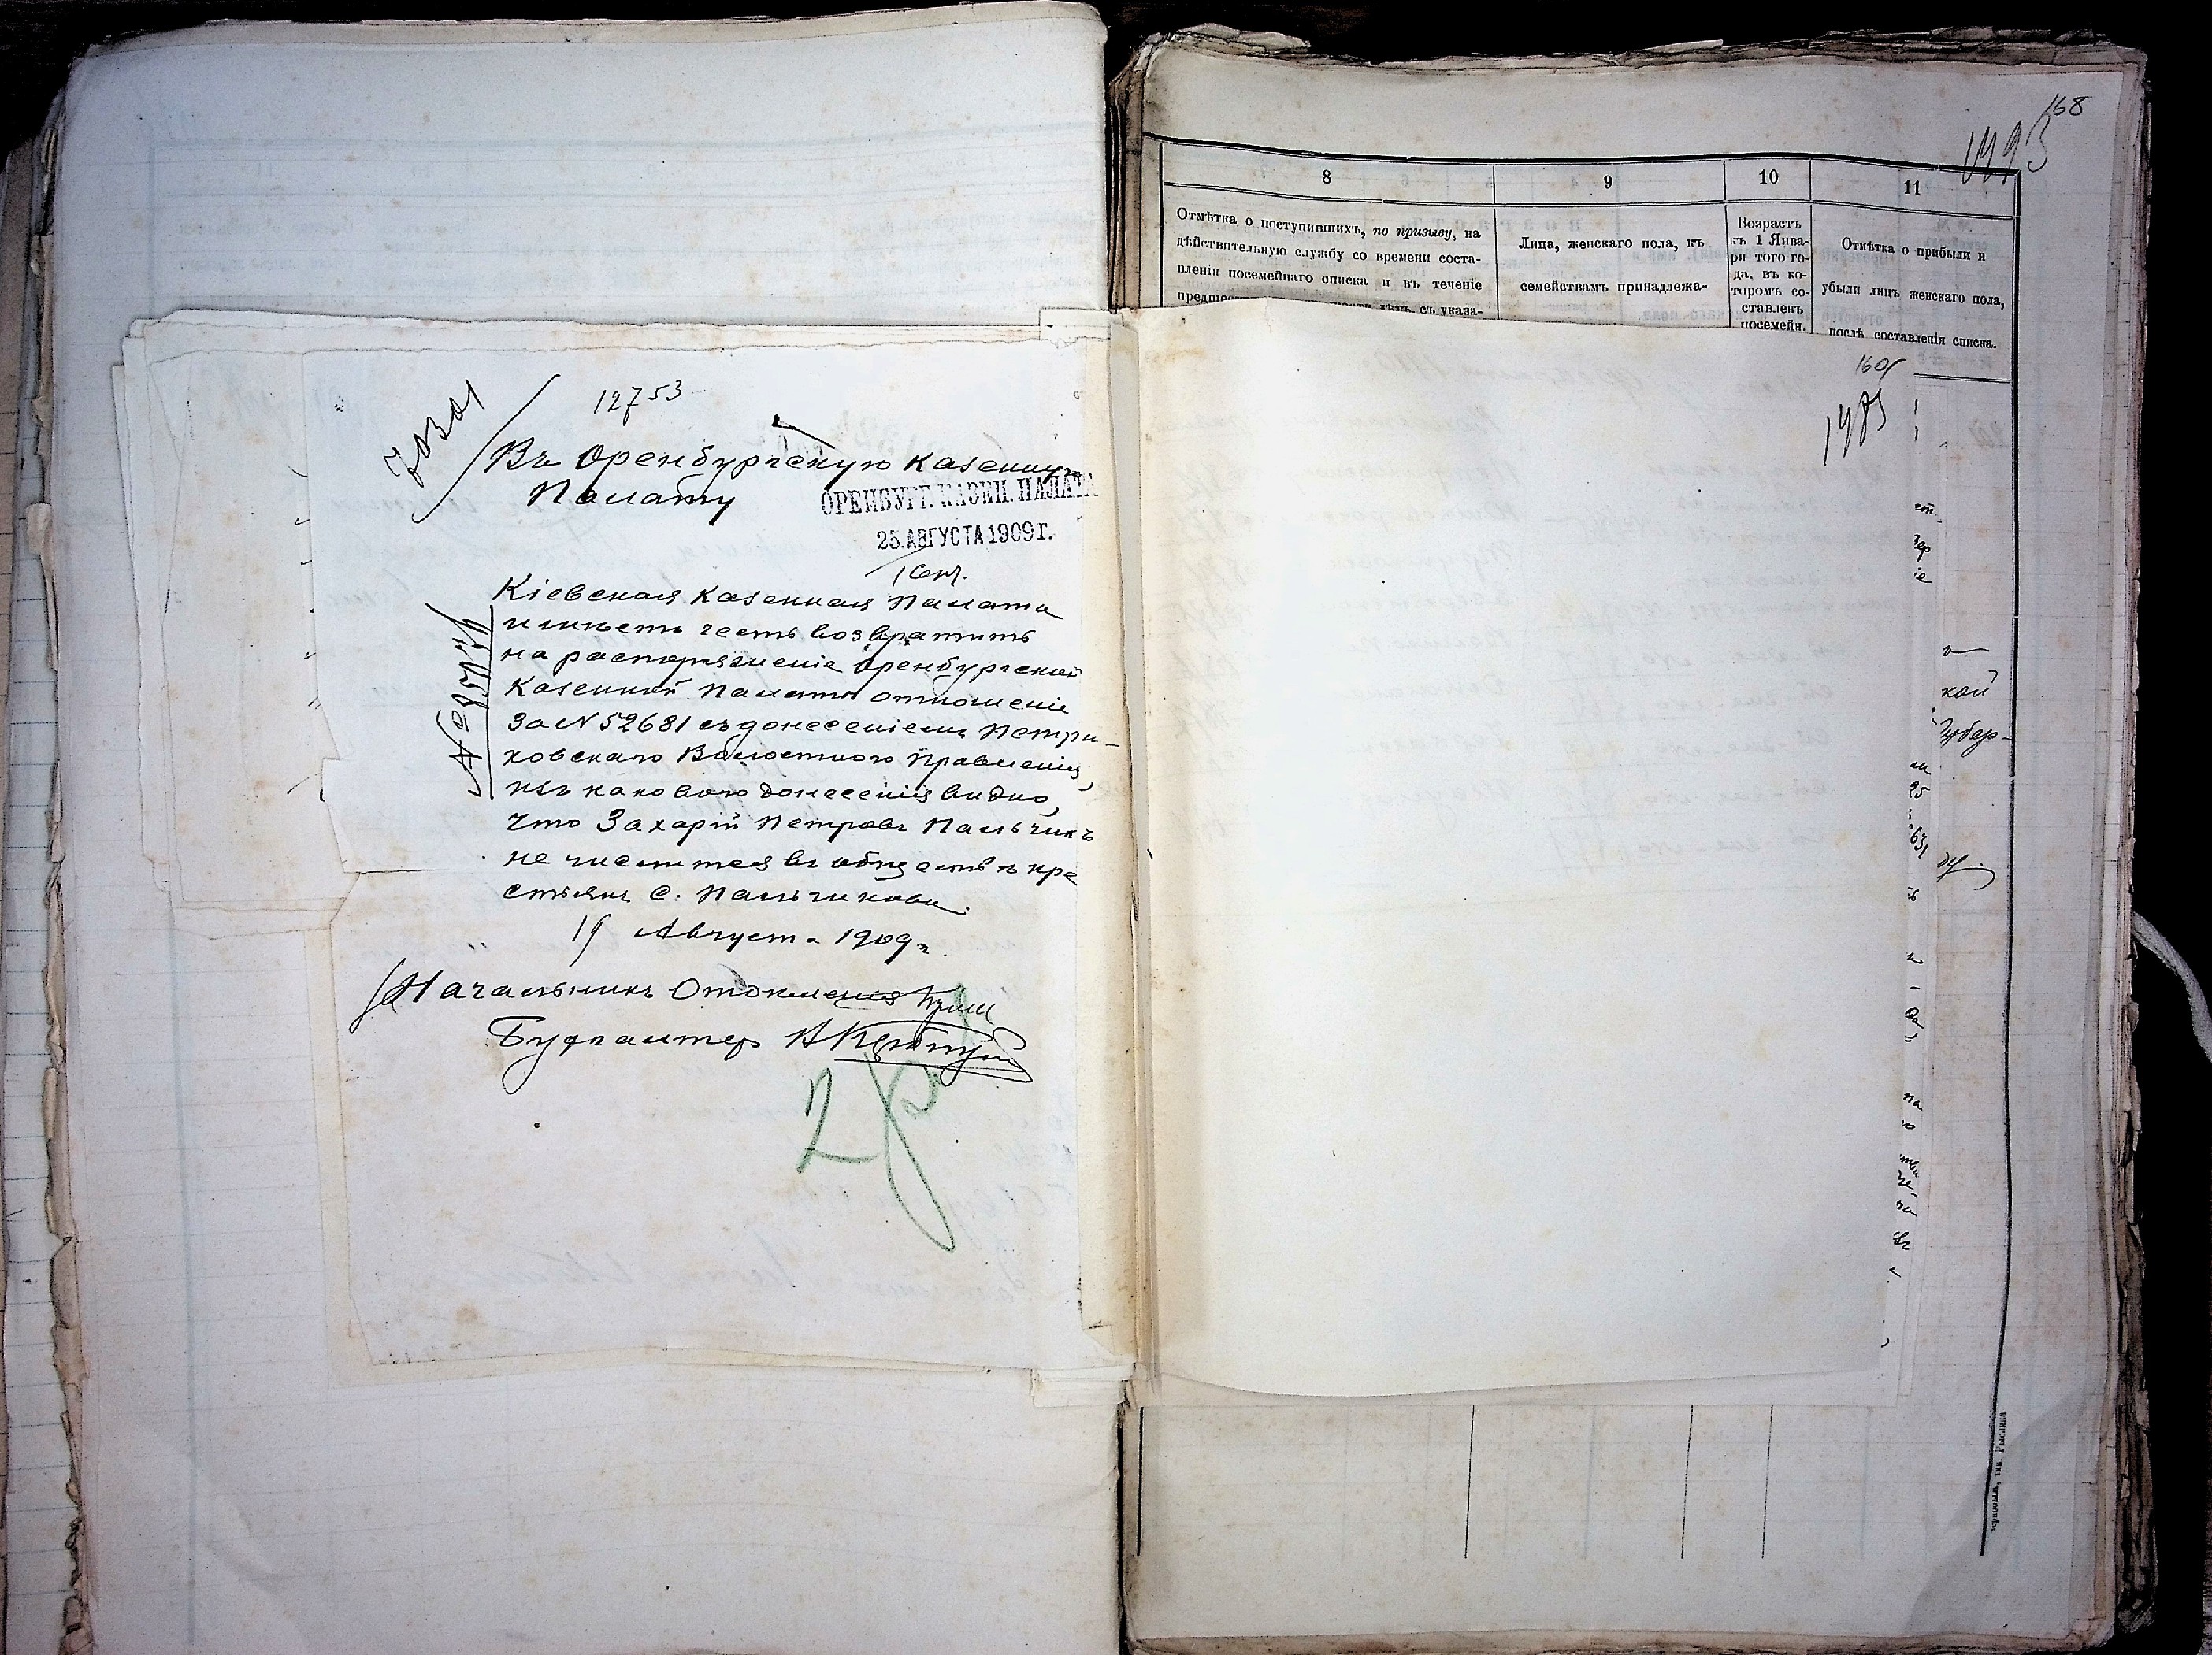 12753
Въ Оренбургскую Казенную
Палату
ОРЕНБУРГ. КАЗЕН. ПАЛАТА
25. АВГУСТА 1909 г.
Кіевская Казенная Палата
имѣетъ честь возвратить
на распоряженіе Оренбургской
Казенной Палаты отношеніе
за N 52681 съ донесеніемъ Петри-
ковскаго Волостного Правленія,
изъ каковаго донесенія видно,
что Захарій Петровъ Пальчикъ
не числится въ обществѣ кре
стьянъ с. Пальчикова.
19 Августа 1909 г.
Начальникъ Отдѣленія
Бухгалтер
2
168
8
9
10
11
Отмѣтка о поступившихъ, по призыву, на
дѣйствительную службу со времени соста-
вленія посемейнаго списка и въ теченіе
съ указа-
Лица, женскаго пола, къ
семействамъ принадлежа-
Возрастъ
къ 1 Янва-
ря того го-
да, въ ко-
торомъ со-
ставленъ
посемейн.
Отмѣтка о прибыли и
убыли лицъ женскаго пола,
послѣ составленія списка.
160
кой
Губер-
25
631
на